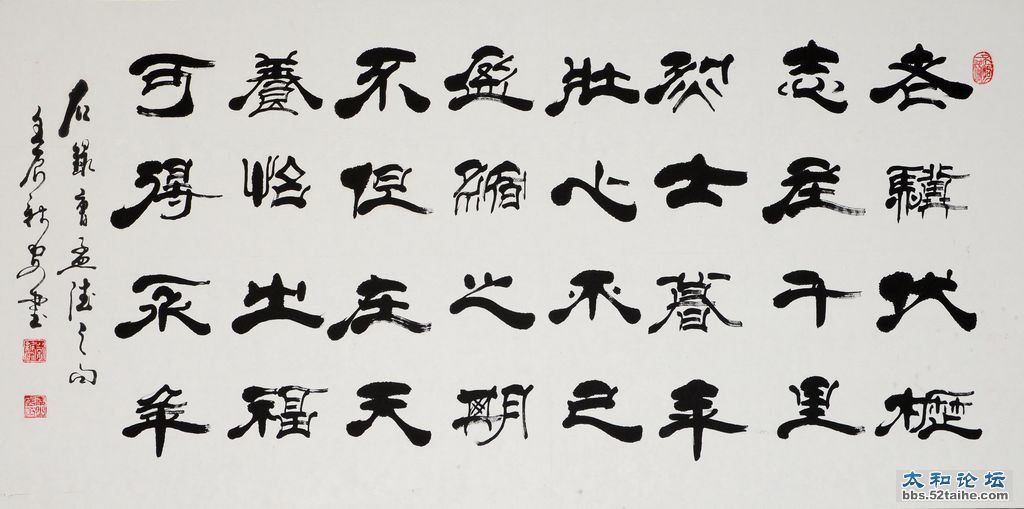 老驥伏櫪
志在千里
烈士暮年
壯心不已
盈縮之期
不但在天
養怡之福
可得永年
右錄曹孟德之句
壬辰秋書
太和论坛
bbs.52taihe.com